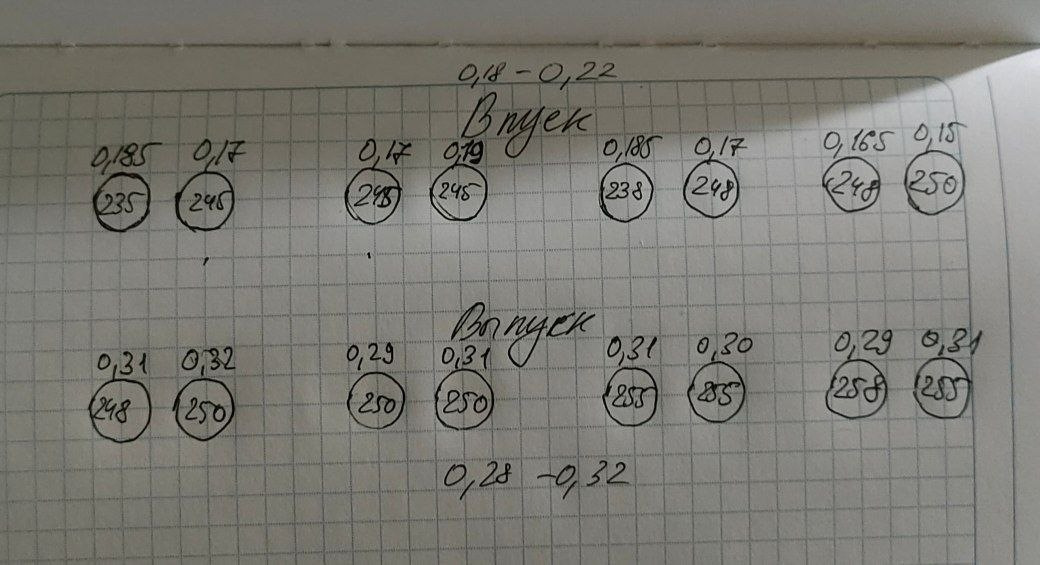 0,18 - 0,22
Впуск
0,185 0,17 0,17 0,19 0,185 0,17 0,165 0,15
235 245 248 245 238 248 248 250
Выпуск
0,31 0,32 0,29 0,31 0,31 0,30 0,29 0,31
248 250 250 250 255 255 258 255
0,28 - 0,32